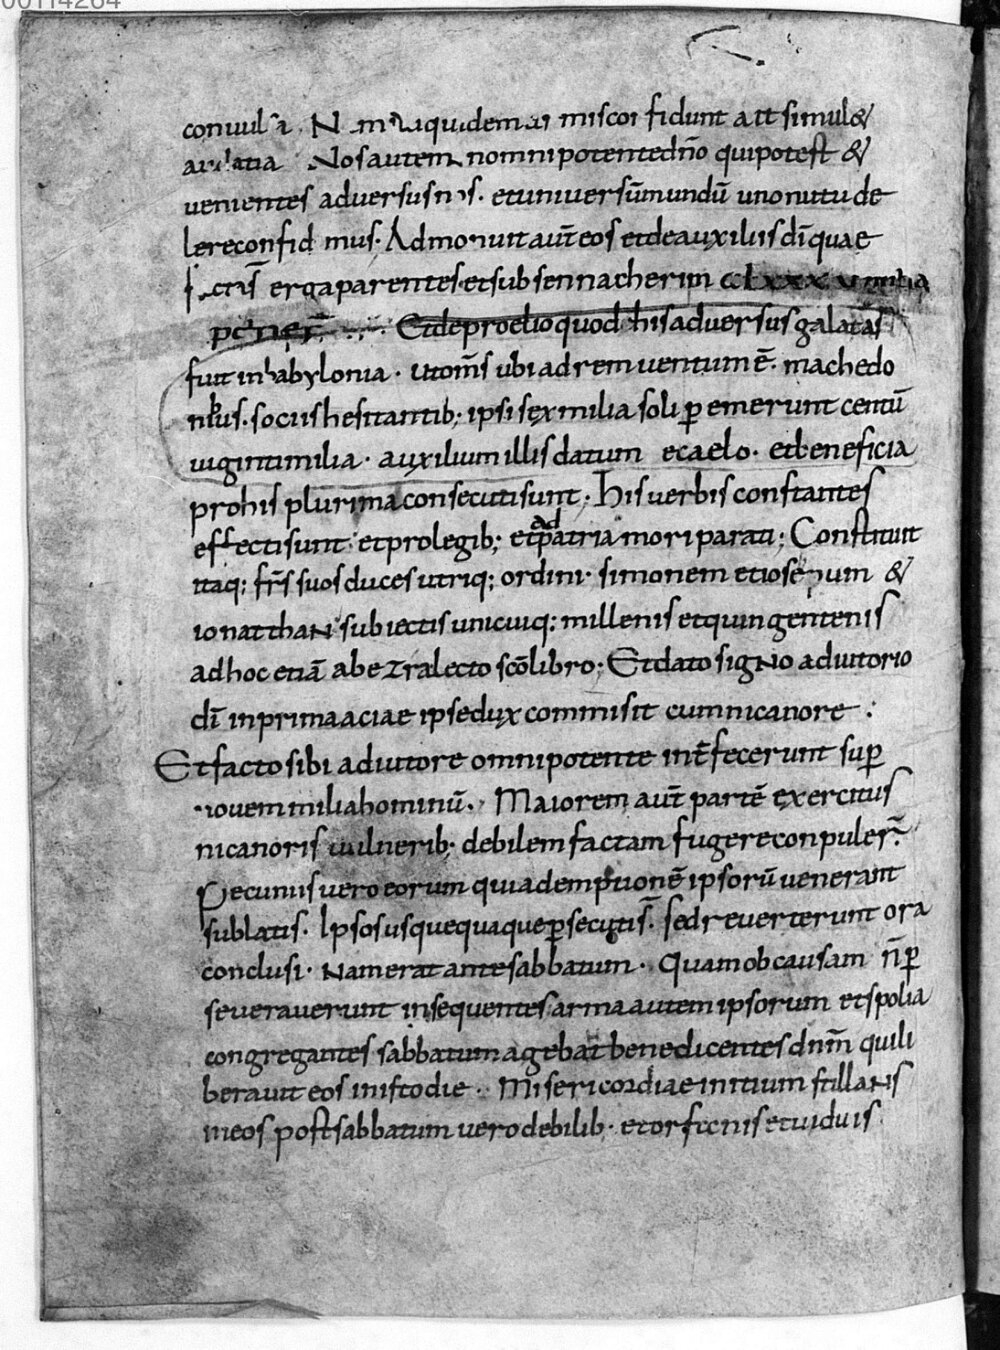 00114264
Nam quidem armis confidunt a&t simul &
audatia Nos autem in omnipotente dño qui potest &
uenientes aduersus nos. et uniuersū mundū uno nutu de
lere confidimus. Admonuit aūt eos et de auxiliis dī quae
facta s̄ erga parentes. et sub sennacherim clxxxv milia
perier̄. Et de proelio quod his aduersus galatas
fuit in babylonia. ut om̄s ubi ad rem uentum ē. machedo
nibus. sociis hesitantib; ipsi sex milia soli p emerunt centū
uiginti milia. auxilium illis datum e caelo. et beneficia
pro his plurima consecuti sunt. His uerbis constantes
effecti sunt. et pro legib; et ad patria mori parati; Constituit
itaq; fr̄s suos duces utriq; ordini. simonem et iosepum &
ionatthan subiectis unicuiq; millenis et quingentenis
ad hoc etiā ab ezra lecto scō libro; Et dato signo adiutorio
dī in prima aciae ipse dux commisit cum nicanore.
Et facto sibi adiutore omnipotente int̄fecerunt sup
nouem milia hominū. Maiorem aūt partē exercitus
nicanoris uulnerib; debilem factam fugere conpuler̄.
Pecuniis uero eorum qui ad emptionē ipsorū uenerant
sublatis. Ipsos usquequaque psecuti s̄. sed reuerterunt ora
conclusi. Nam erat ante sabbatum. Quam ob causam n̄ p
seuerauerunt insequentes arma autem ipsorum et spolia
congregantes sabbatum agebāt benedicentes dn̄m qui li
berauit eos in isto die. Misericordiae initium stillans
in eos post sabbatum uero debilib; et orfanis et uiduis